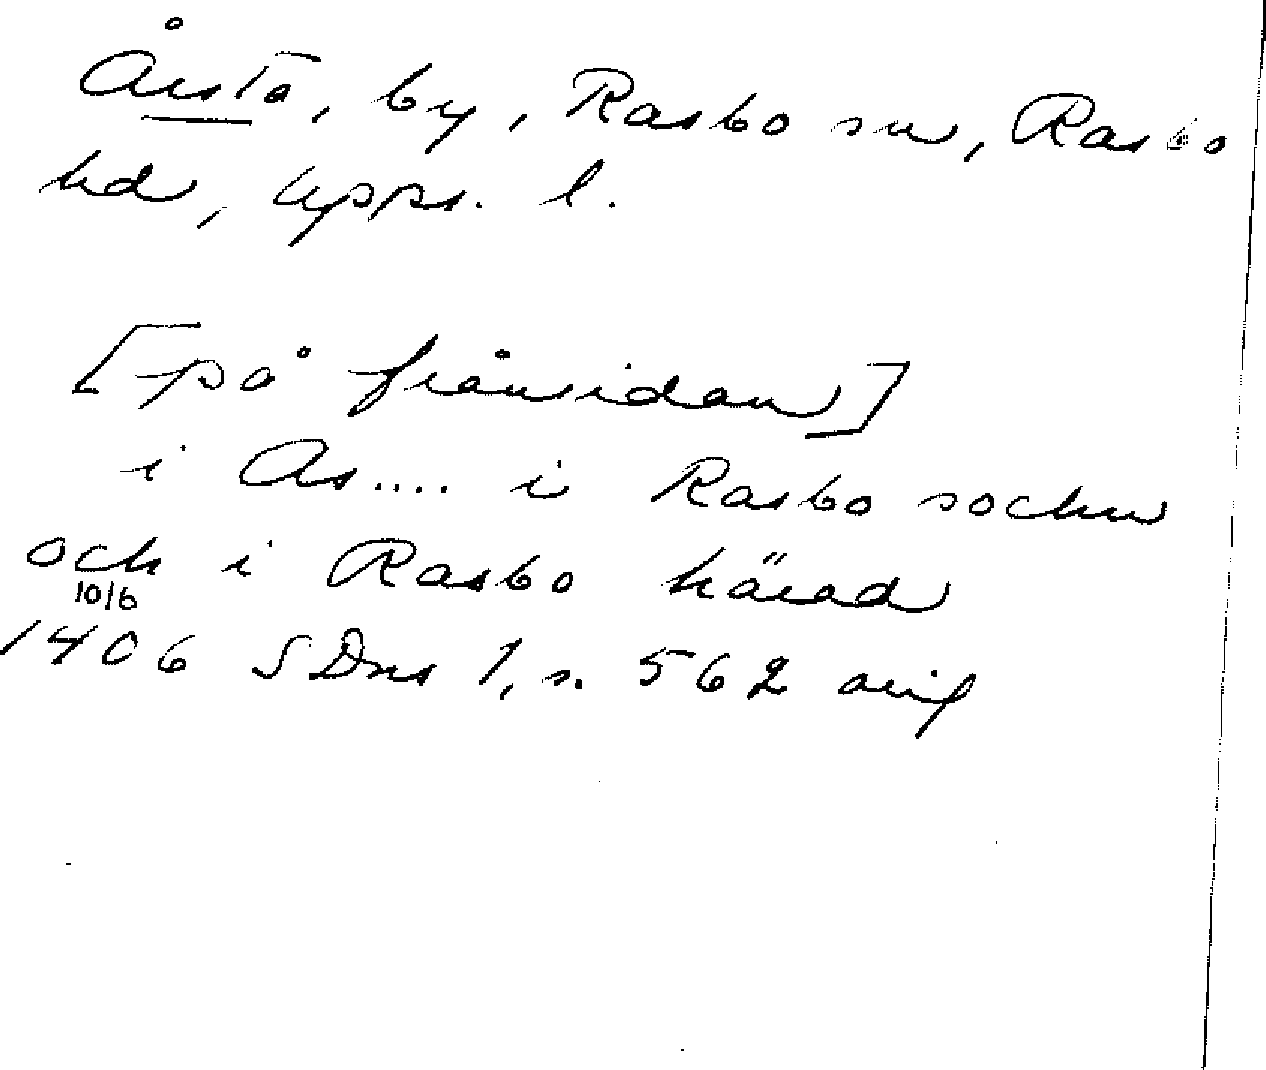 Årsta, by, Rasbo sn, Rasbo
hd, Upps. l.
[på frånsidan]
i As.... i Rasbo socken
och i Rasbo härad
10/6
1406 SDns 1, s. 562 avs